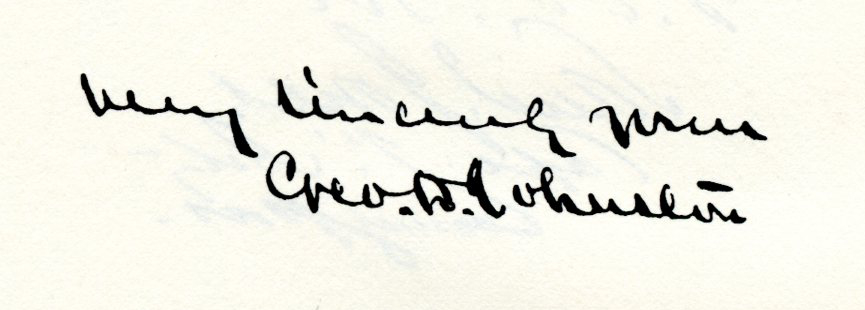 Very sincerely yours
Geo. D. Johnston